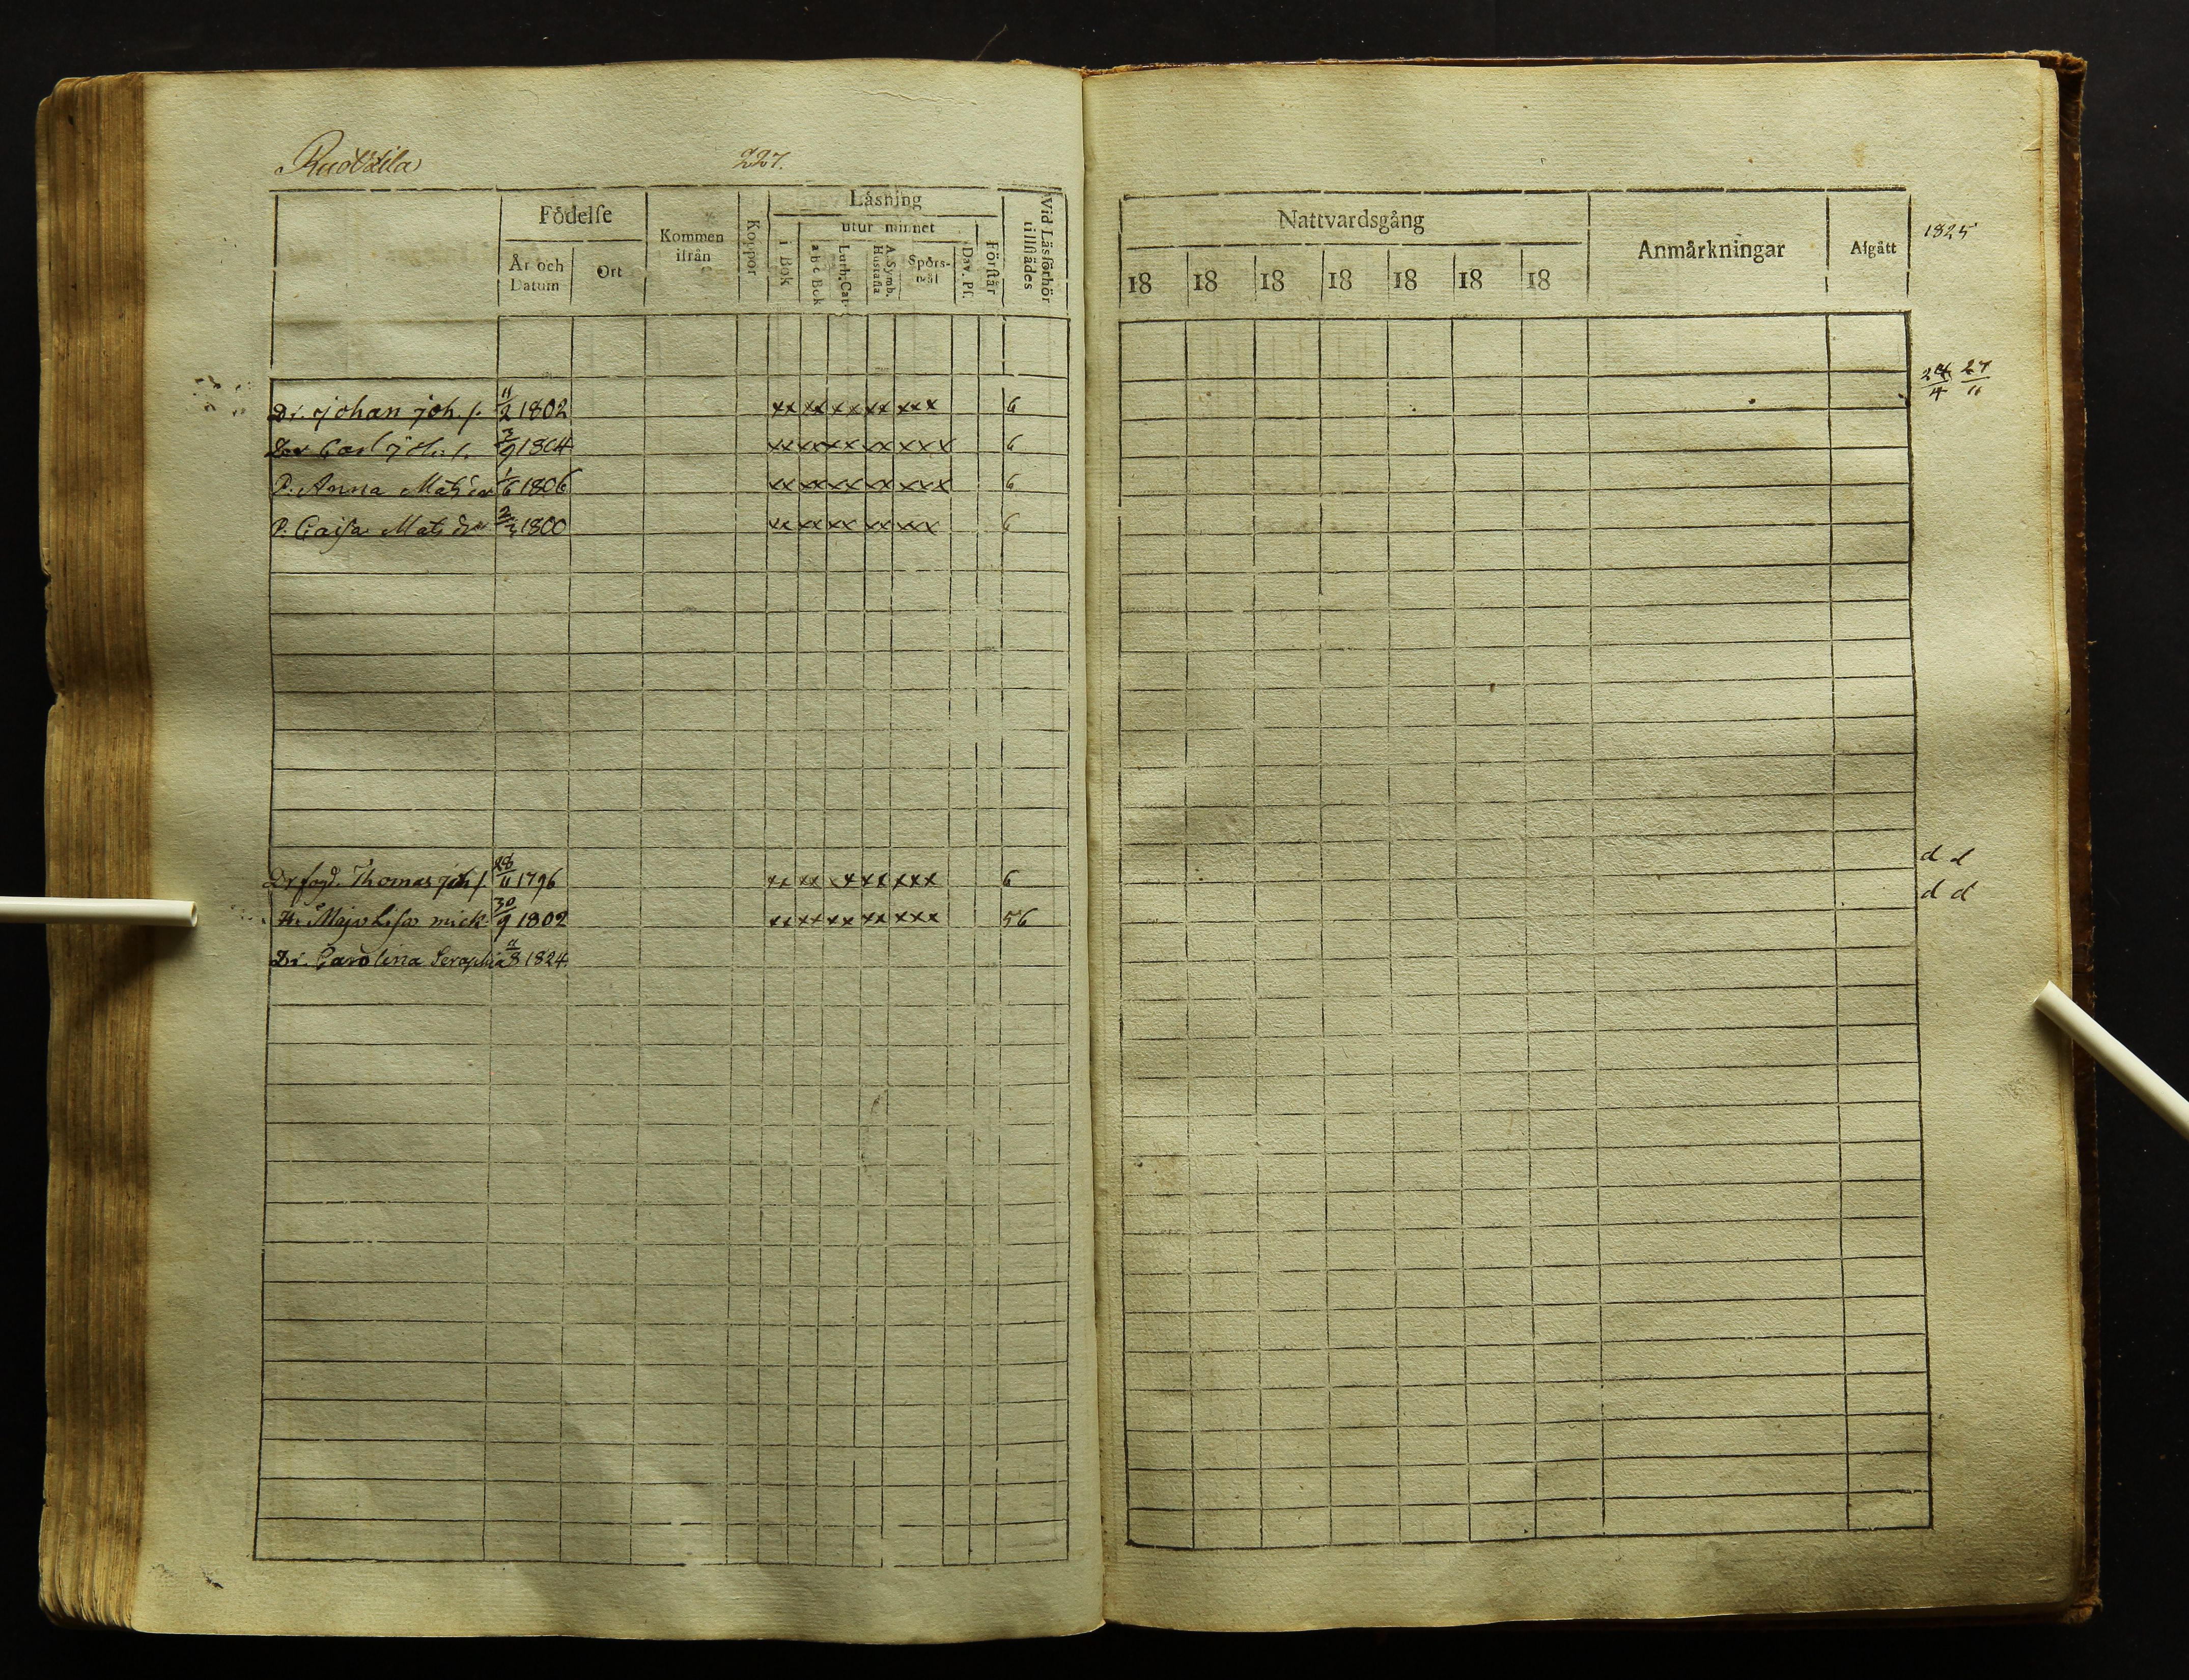 227.
Födelse
Kommen ifrån
Koppor
Läsning
Vid Läsförhör tillstädes
År och Datum
Ort
i Bok
utur minnet
a b c Bok
Luth. Cat.
A. Symb. Hustafla
Spörs-mål
Dav. Ps.
Förstår
Dr. Johan Joh. s. 11/2 1802 xx xx xx xx xxx 6
Carl 3/9 1804 xx xx xx xx xxx 6
P. Anna Mats dr 1/6 1806 xx xx xx xx xxx 6
P. Caisa Mats dr 1800 xx xx xx xx xxx 6
Dr. fogd. Thomas Joh. s. 28/11 1796 xx xx xx xx xxx 6
H. Maja Lisa mick. 30/9 1802 xx xx xx xx xxx 56
Carolina Seraphia 11/8 1824
Nattvardsgång
Anmärkningar
Afgått
1825
18 18 18 18 18 18 18
24/4 27/11
d d
d d